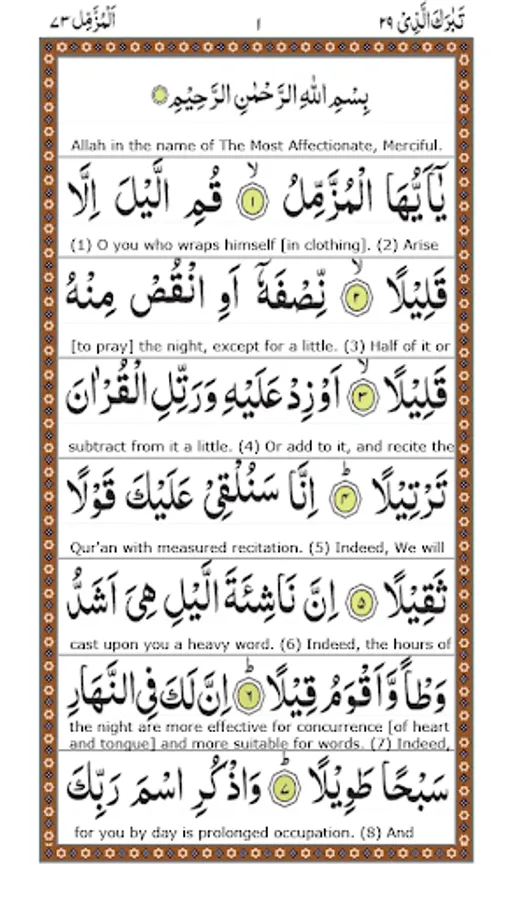 تَبٰرَكَ الَّذِیْ ۲۹ ۱ اَلْمُزَّمِّل ۷۳
بِسْمِ اللّٰهِ الرَّحْمٰنِ الرَّحِیْمِ
Allah in the name of The Most Affectionate, Merciful.
یٰۤاَیُّهَا الْمُزَّمِّلُ ۙ۱ قُمِ الَّیْلَ اِلَّا
(1) O you who wraps himself [in clothing]. (2) Arise
قَلِیْلًا ۙ۲ نِّصْفَهٗۤ اَوِ انْقُصْ مِنْهُ
[to pray] the night, except for a little. (3) Half of it or
قَلِیْلًا ۙ۳ اَوْ زِدْ عَلَیْهِ وَ رَتِّلِ الْقُرْاٰنَ
subtract from it a little. (4) Or add to it, and recite the
تَرْتِیْلًا ؕ۴ اِنَّا سَنُلْقِیْ عَلَیْكَ قَوْلًا
Qur'an with measured recitation. (5) Indeed, We will
ثَقِیْلًا ۵ اِنَّ نَاشِئَةَ الَّیْلِ هِیَ اَشَدُّ
cast upon you a heavy word. (6) Indeed, the hours of
وَطْاً وَّ اَقْوَمُ قِیْلًا ؕ۶ اِنَّ لَكَ فِی النَّهَارِ
the night are more effective for concurrence [of heart
and tongue] and more suitable for words. (7) Indeed,
سَبْحًا طَوِیْلًا ؕ۷ وَ اذْكُرِ اسْمَ رَبِّكَ
for you by day is prolonged occupation. (8) And